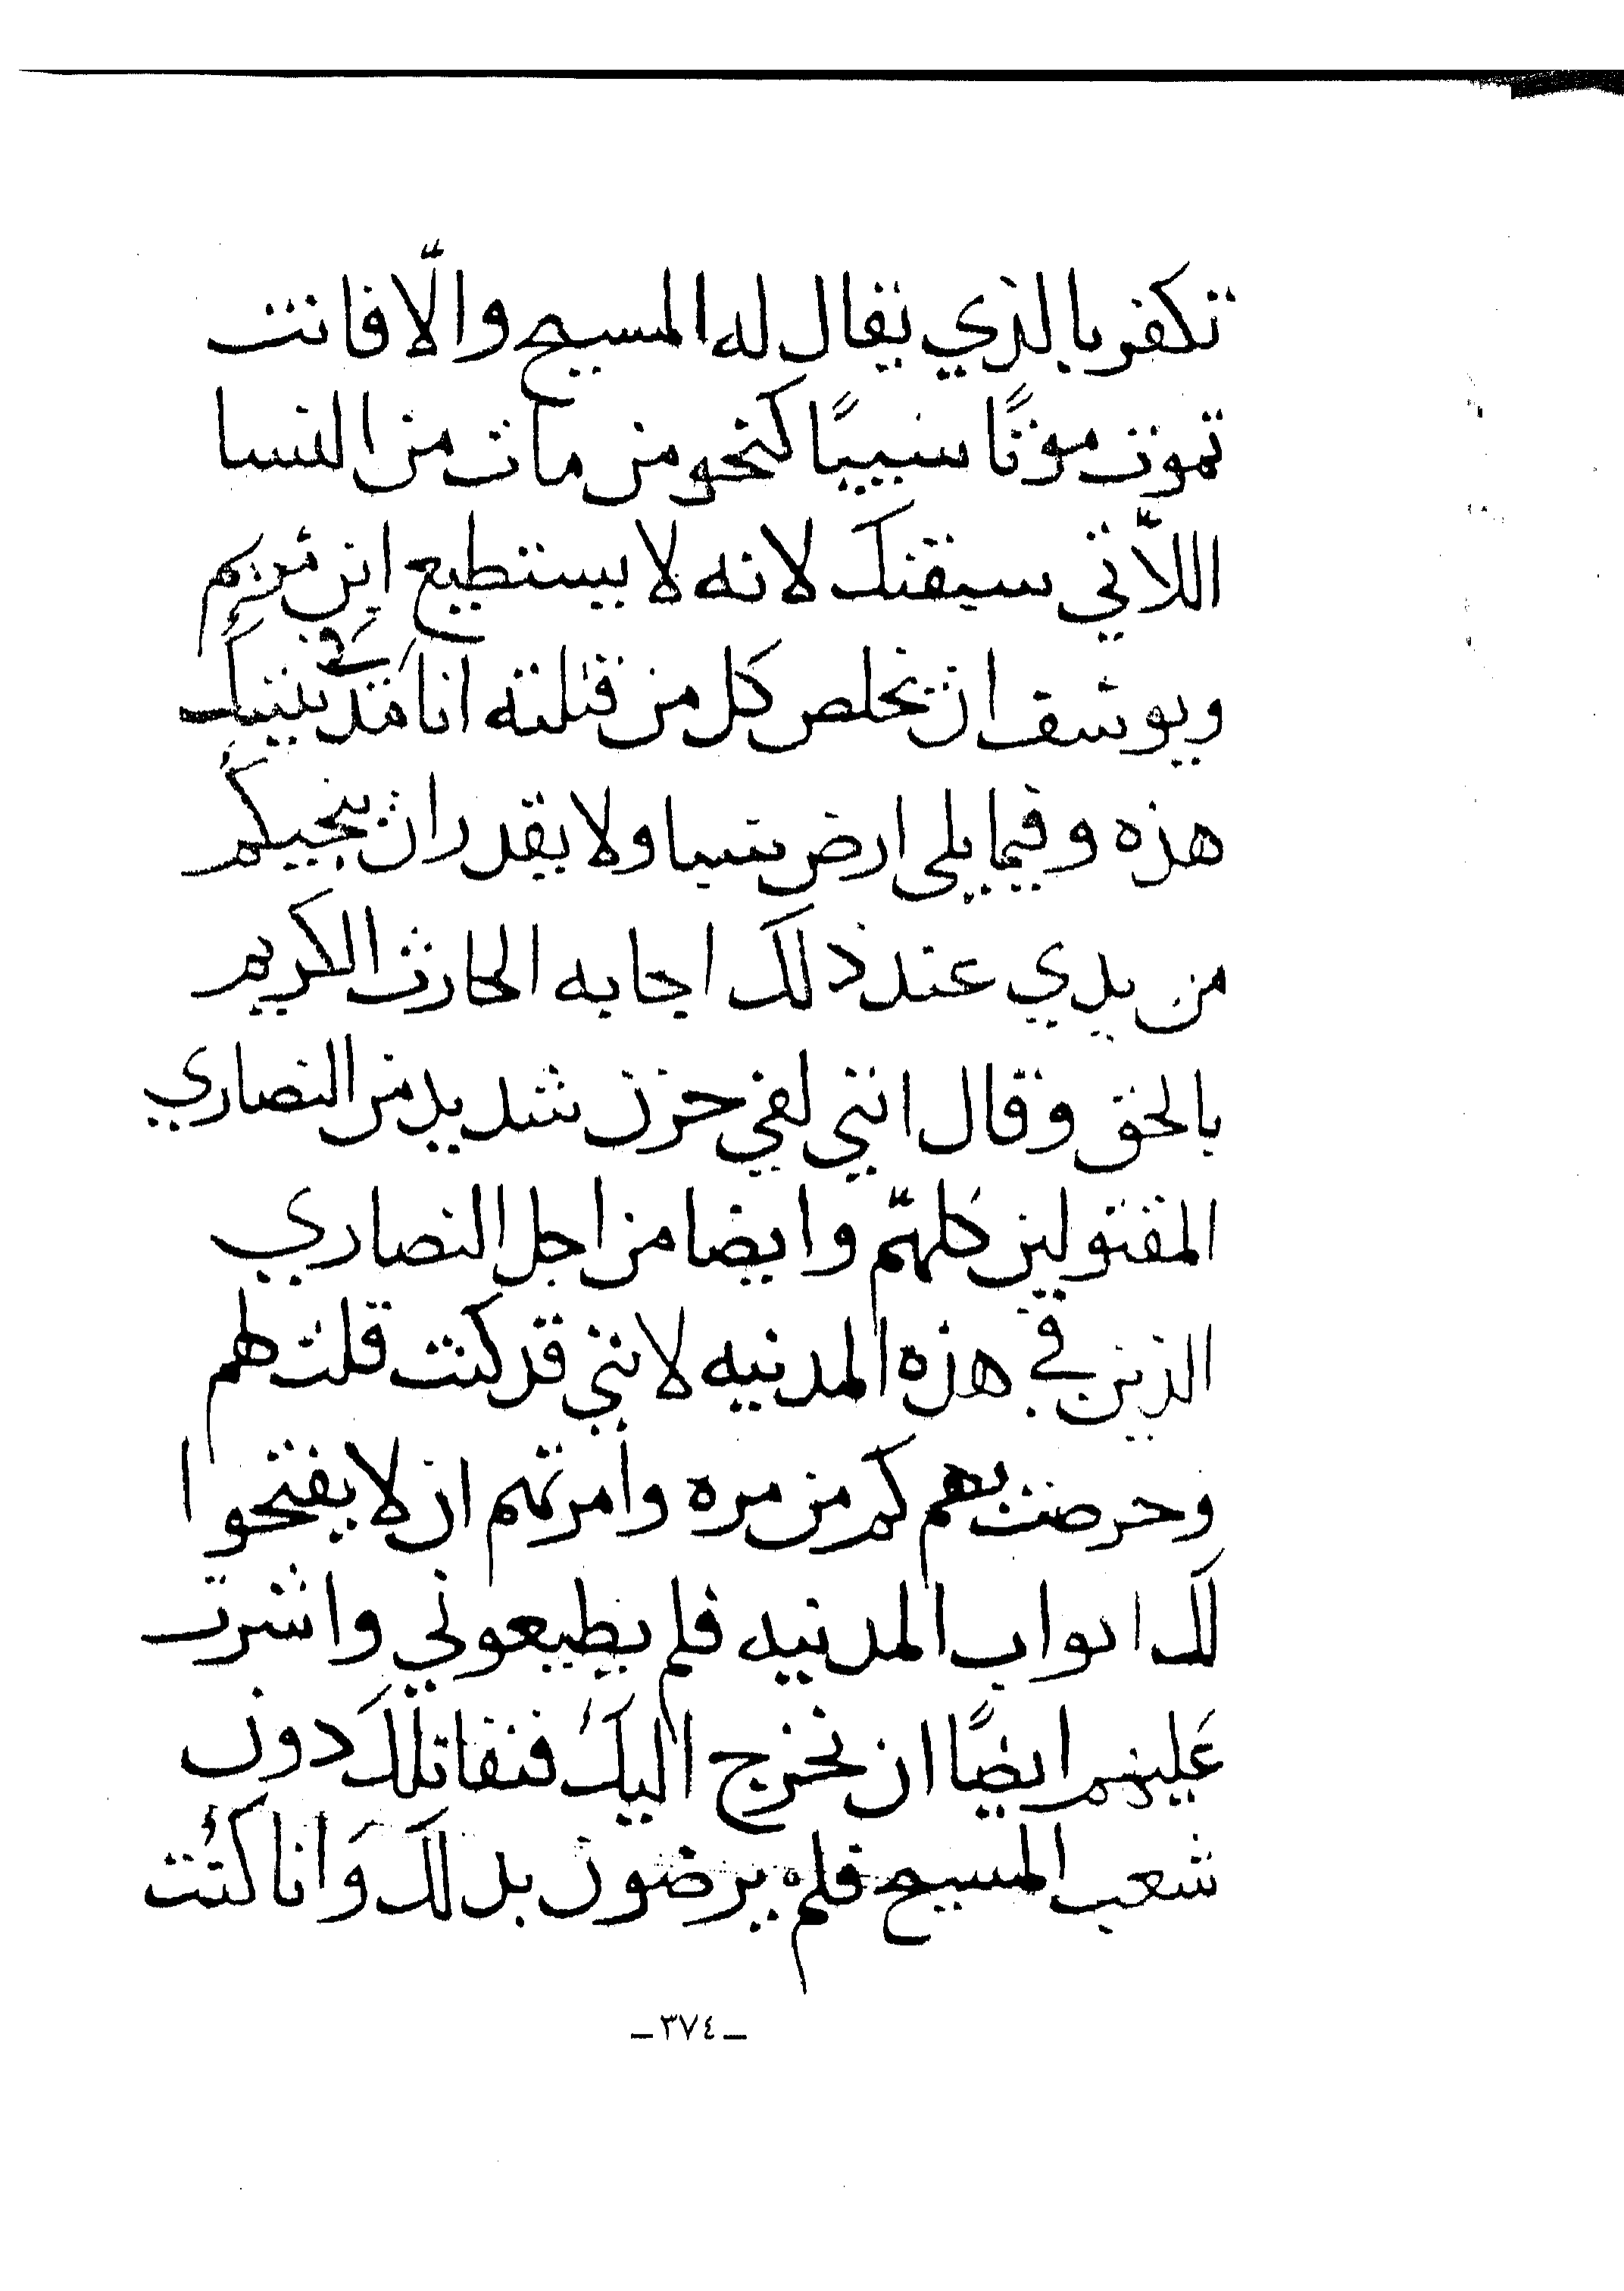 تكفر بالذي يقال له المسيح والّا فانت
تموت موتًا سيبيًا كنحو من مات من النسا
اللّاتي سبقنك لانه لا يستطيع ابن مريم
ويوسف ان يخلص كل من قتلته انا في مدينتك
هذه وفيما يلي ارض سبا ولا يقدر ان ينجيكم
من يدي عند ذلك اجابه الحارث الكريم
بالحق وقال انني لفي حزن شديد من النصاري
المقتولين كلهّم وايضا من اجل النصاري
الذين في هذه المدنيه لانني قد كنت قلت لهم
وحرصت بهم كم من مره وامرتهم ان لا يفتحوا
لك ابواب المدنيه فلم يطيعوني واشرت
عَليهم ايضًا ان نخرج اليك فنقاتلك دون
شعب المسيح فلم يرضون بدلك وَانا كنُت
_ ٣٧٤ _